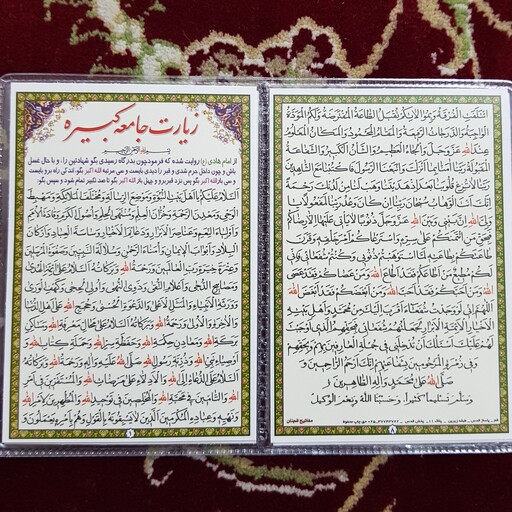 ائْتَلَفَتِ الْفُرْقَةُ وَبِمُوالاتِكُمْ تُقْبَلُ الطّاعَةُ الْمُفْتَرَضَةُ وَلَكُمُ الْمَوَدَّةُ
الْواجِبَةُ وَالدَّرَجاتُ الرَّفيعَةُ وَالْمَقامُ الْمَحْمُودُ وَالْمَكانُ الْمَعْلُومُ
عِنْدَ اللهِ عَزَّ وَجَلَّ وَالْجاهُ الْعَظيمُ وَالشَّأْنُ الْكَبيرُ وَالشَّفاعَةُ
الْمَقْبُولَةُ رَبَّنا آمَنّا بِما اَنْزَلْتَ وَاتَّبَعْنَا الرَّسُولَ فَاكْتُبْنا مَعَ الشّاهِدينَ
رَبَّنا لاتُزِغْ قُلُوبَنا بَعْدَ اِذْ هَدَيْتَنا وَهَبْ لَنا مِنْ لَدُنْكَ رَحْمَةً
اِنَّكَ اَنْتَ الْوَهّابُ سُبْحانَ رَبِّنا اِنْ كانَ وَعْدُ رَبِّنا لَمَفْعُولاً يا وَلِيَّ
اللهِ اِنَّ بَيْني وَبَيْنَ اللهِ عَزَّ وَجَلَّ ذُنُوباً لايَأْتي عَلَيْها اِلاّ رِضاكُمْ
فَبِحَقِّ مَنِ ائْتَمَنَكُمْ عَلى سِرِّهِ وَاسْتَرْعاكُمْ اَمْرَ خَلْقِهِ وَقَرَنَ
طاعَتَكُمْ بِطاعَتِهِ لَمَّا اسْتَوْهَبْتُمْ ذُنُوبي وَكُنْتُمْ شُفَعائي فَاِنّي
لَكُمْ مُطيعٌ مَنْ اَطاعَكُمْ فَقَدْ اَطاعَ اللهَ وَمَنْ عَصاكُمْ فَقَدْ عَصَى
اللهَ وَمَنْ اَحَبَّكُمْ فَقَدْ اَحَبَّ اللهَ وَمَنْ اَبْغَضَكُمْ فَقَدْ اَبْغَضَ اللهَ
اَللّهُمَّ اِنّي لَوْ وَجَدْتُ شُفَعاءَ اَقْرَبَ اِلَيْكَ مِنْ مُحَمَّدٍ وَاَهْلِ بَيْتِهِ
الْاَخْيارِ الْاَئِمَّةِ الْاَبْرارِ لَجَعَلْتُهُمْ شُفَعائي فَبِحَقِّهِمُ الَّذي اَوْجَبْتَ
لَهُمْ عَلَيْكَ اَسْئَلُكَ اَنْ تُدْخِلَني في جُمْلَةِ الْعارِفينَ بِهِمْ وَبِحَقِّهِمْ
وَفي زُمْرَةِ الْمَرْحُومينَ بِشَفاعَتِهِمْ اِنَّكَ اَرْحَمُ الرّاحِمينَ وَ
صَلَّى اللهُ عَلى مُحَمَّدٍ وَآلِهِ الطّاهِرينَ وَ
سَلَّمَ تَسْليماً كَثيراً وَحَسْبُنَا اللهُ وَنِعْمَ الْوَكيلُ
مفاتیح الجنان
۸
زیارت جامعه کبیره
بسم الله الرحمن الرحیم
از امام هادی (ع) روایت شده که فرمود: چون بدرگاه رسیدی بگو شهادتین را، و با حال غسل
باش و چون داخل حرم شدی و قبر را دیدی بایست و سی مرتبه الله اکبر بگو. اندکی راه برو بایست
و سی بار الله اکبر بگو پس نزد قبر برو و چهل بار الله اکبر بگو تا صد تکبیر تمام شود و سپس بگو:
اَلسَّلامُ عَلَيْكُمْ يا اَهْلَ بَيْتِ النُّبُوَّةِ وَمَوْضِعَ الرِّسالَةِ وَمُخْتَلَفَ الْمَلائِكَةِ وَمَهْبِطَ
الْوَحْيِ وَمَعْدِنَ الرَّحْمَةِ وَخُزّانَ الْعِلْمِ وَمُنْتَهَى الْحِلْمِ وَاُصُولَ الْكَرَمِ وَقادَةَ الْاُمَمِ
وَاَوْلِياءَ النِّعَمِ وَعَناصِرَ الْاَبْرارِ وَدَعائِمَ الْاَخْيارِ وَساسَةَ الْعِبادِ وَاَرْكانَ
الْبِلادِ وَاَبْوابَ الْايمانِ وَاُمَناءَ الرَّحْمنِ وَسُلالَةَ النَّبِيّينَ وَصَفْوَةَ الْمُرْسَلينَ
وَعِتْرَةَ خِيَرَةِ رَبِّ الْعالَمينَ وَرَحْمَةُ اللهِ وَبَرَكاتُهُ اَلسَّلامُ عَلى اَئِمَّةِ الْهُدى
وَمَصابيحِ الدُّجى وَاَعْلامِ التُّقى وَذَوِي النُّهى وَاُولِي الْحِجى وَكَهْفِ الْوَرى
وَوَرَثَةِ الْاَنْبِياءِ وَالْمَثَلِ الْاَعْلى وَالدَّعْوَةِ الْحُسْنى وَحُجَجِ اللهِ عَلى اَهْلِ الدُّنْيا
وَالْاخِرَةِ وَالْاُولى وَرَحْمَةُ اللهِ وَبَرَكاتُهُ اَلسَّلامُ عَلى مَحالِّ مَعْرِفَةِ اللهِ وَمَساكِنِ
بَرَكَةِ اللهِ وَمَعادِنِ حِكْمَةِ اللهِ وَحَفَظَةِ سِرِّ اللهِ وَحَمَلَةِ كِتابِ اللهِ وَ
اَوْصِياءِ نَبِيِّ اللهِ وَذُرِّيَّةِ رَسُولِ اللهِ صَلَّى اللهُ عَلَيْهِ وَآلِهِ وَرَحْمَةُ اللهِ وَبَرَكاتُهُ
اَلسَّلامُ عَلَى الدُّعاةِ اِلَى اللهِ وَالْاَدِلّاءِ عَلى مَرْضاتِ اللهِ وَالْمُسْتَقِرّينَ في اَمْرِ
اللهِ وَالتّامّينَ في مَحَبَّةِ اللهِ وَالْمُخْلِصينَ في تَوْحيدِ اللهِ وَالْمُظْهِرينَ لِاَمْرِ اللهِ
وَنَهْيِهِ وَعِبادِهِ الْمُكْرَمينَ الَّذينَ لايَسْبِقُونَهُ بِالْقَوْلِ وَهُمْ بِاَمْرِهِ يَعْمَلُونَ وَ
۱